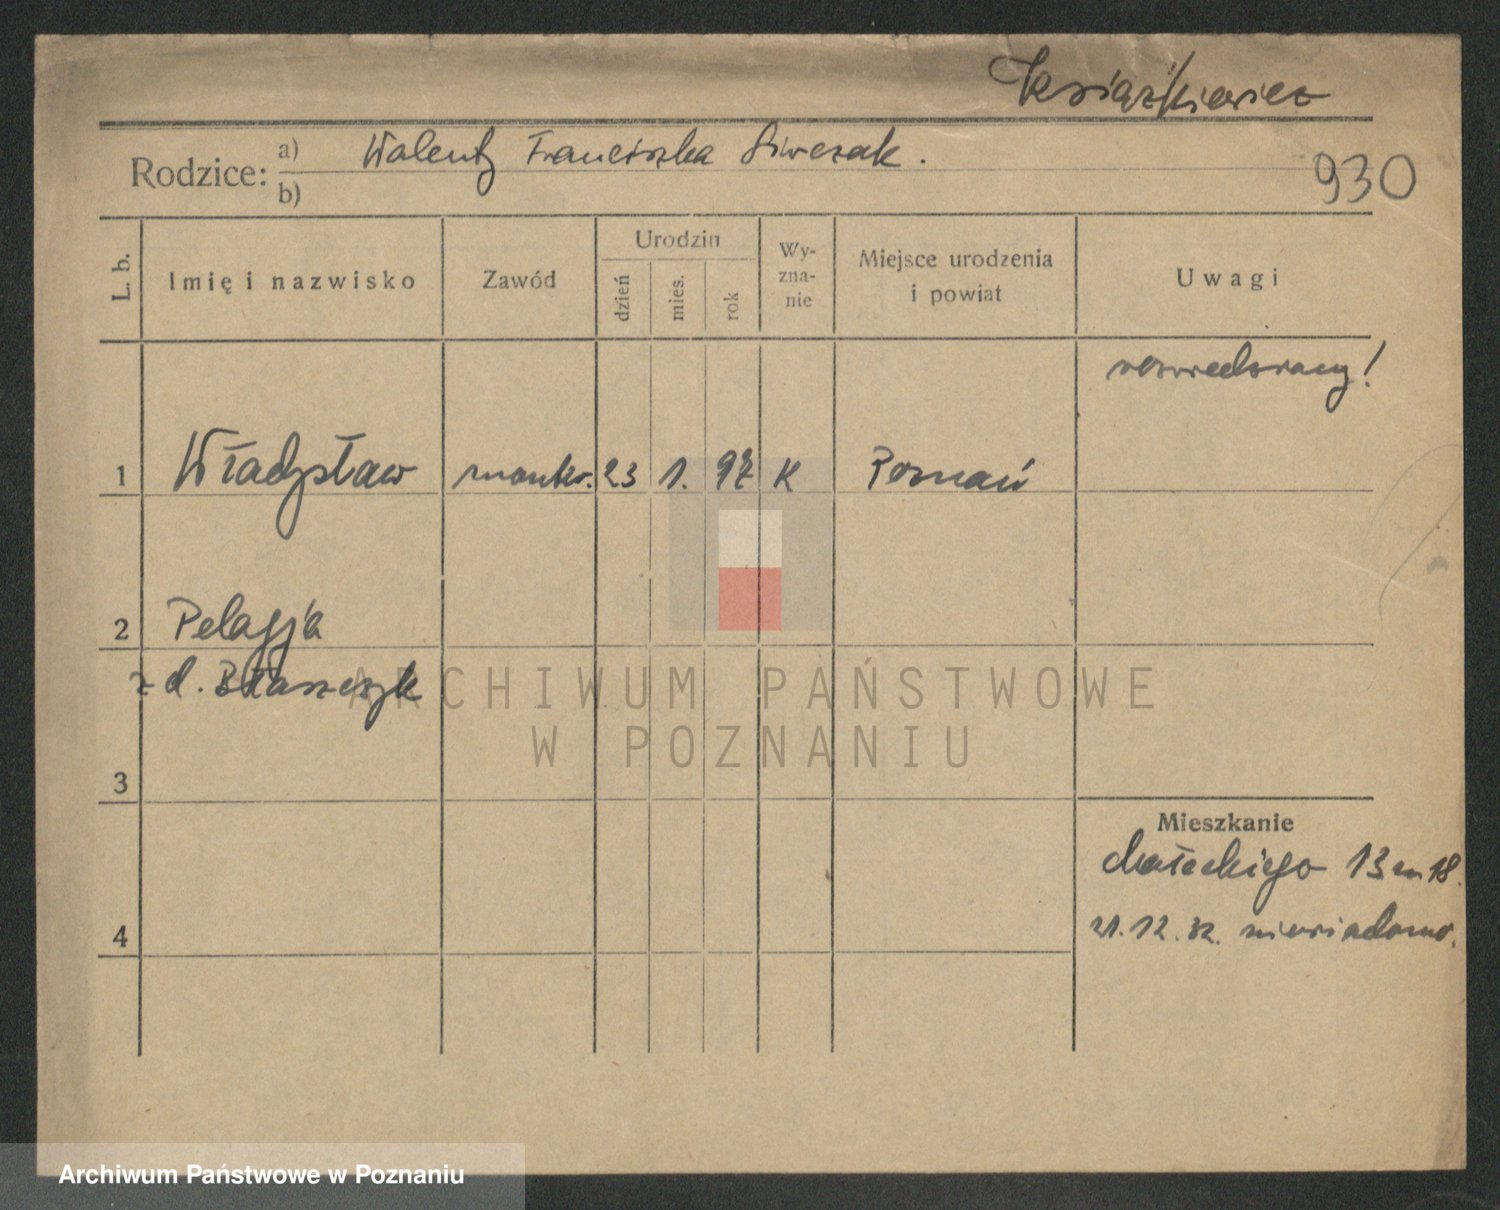 Książkiewicz
Rodzice: a) Walenty Franciszka Siwczak.
b)
930
L. b. Imię i nazwisko Zawód Urodzin dzień mies. rok Wy-zna-nie Miejsce urodzenia i powiat Uwagi
1 Władysław monter. 23 1. 97 K Poznań
2 Pelagja
z d. Błaszczyk
3
4
Mieszkanie
Małeckiego 13 m 18.
21.12.32. niewiadomo.
ARCHIWUM PAŃSTWOWE
W POZNANIU
Archiwum Państwowe w Poznaniu